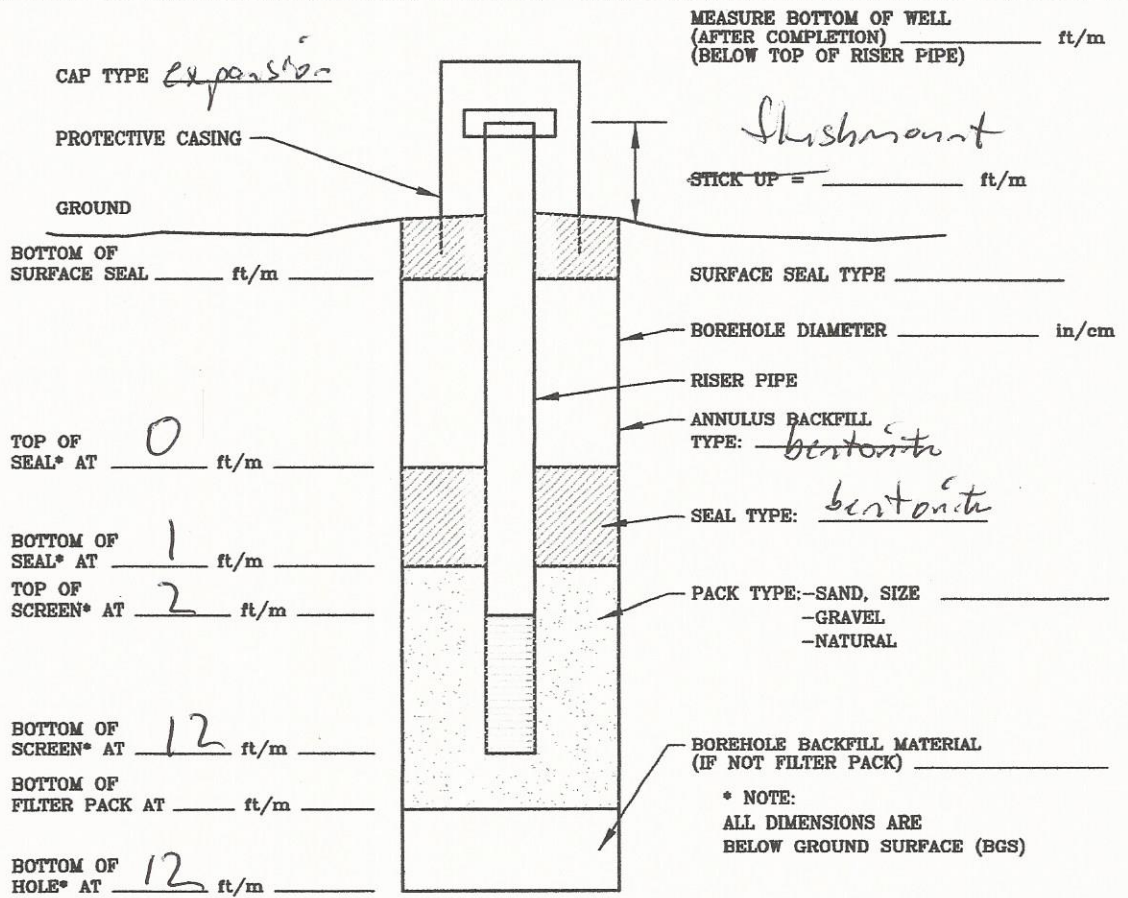 MEASURE BOTTOM OF WELL
(AFTER COMPLETION) ft/m
(BELOW TOP OF RISER PIPE)
CAP TYPE expansion
PROTECTIVE CASING
flushmount
STICK UP = ft/m
GROUND
BOTTOM OF
SURFACE SEAL ft/m
SURFACE SEAL TYPE
BOREHOLE DIAMETER in/cm
RISER PIPE
ANNULUS BACKFILL
TYPE: bentonite
TOP OF
SEAL* AT 0 ft/m
SEAL TYPE: bentonite
BOTTOM OF
SEAL* AT 1 ft/m
TOP OF
SCREEN* AT 2 ft/m
PACK TYPE:-SAND, SIZE
-GRAVEL
-NATURAL
BOTTOM OF
SCREEN* AT 12 ft/m
BOREHOLE BACKFILL MATERIAL
(IF NOT FILTER PACK)
BOTTOM OF
FILTER PACK AT ft/m
* NOTE:
ALL DIMENSIONS ARE
BELOW GROUND SURFACE (BGS)
BOTTOM OF
HOLE* AT 12 ft/m